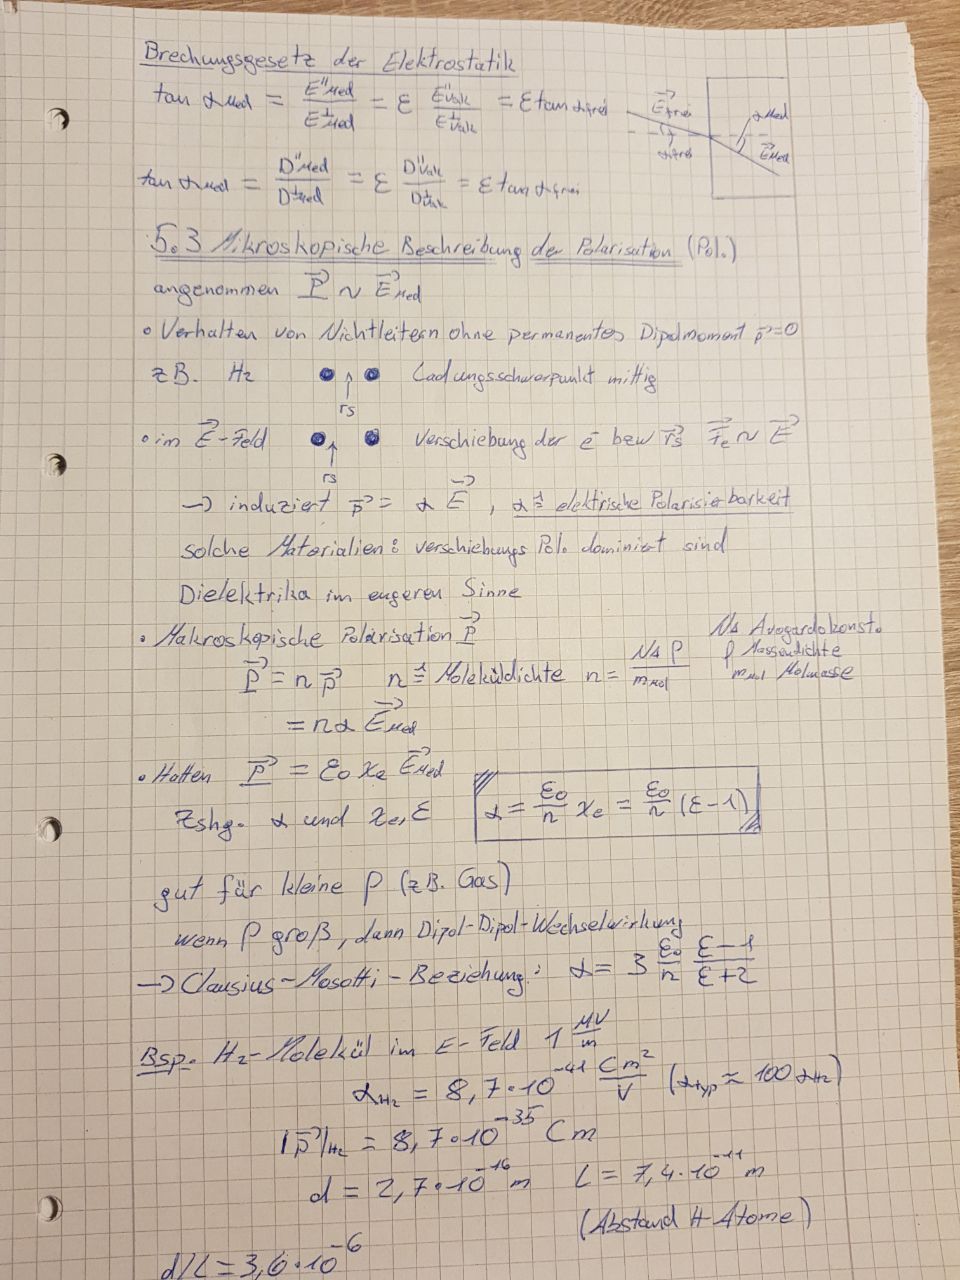 Brechungsgesetz der Elektrostatik
tan α_Med = E''_Med / E^⊥_Med = ε E''_Vak / E^⊥_Vak = ε tan α_frei
E⃗_frei α_frei α_Med E⃗_Med
tan α_Med = D''_Med / D^⊥_Med = ε D''_Vak / D^⊥_Vak = ε tan α_frei
5.3 Mikroskopische Beschreibung der Polarisation (Pol.)
angenommen P⃗ ~ E⃗_Med
• Verhalten von Nichtleitern ohne permanentes Dipolmoment p⃗=0
zB. H₂ Ladungsschwerpunkt mittig
rs
• im E⃗-Feld Verschiebung der e⁻ bzw r⃗s F⃗e ~ E⃗
rs
→ induziert p⃗ = α E⃗ , α ≙ elektrische Polarisierbarkeit
solche Materialien: verschiebungs Pol. dominiert sind
Dielektrika im engeren Sinne
• Makroskopische Polarisation P⃗
P⃗ = n p⃗ n ≙ Moleküldichte n = N_A ρ / m_Mol
N_A Avogardokonst.
ρ Massendichte
m_Mol Molmasse
= nα E⃗_Med
• Hatten P⃗ = ε₀ χe E⃗_Med
Zshg. α und χe, ε α = ε₀/n χe = ε₀/n (ε-1)
gut für kleine ρ (zB. Gas)
wenn ρ groß, dann Dipol-Dipol-Wechselwirkung
→ Clausius-Mosotti-Beziehung: α = 3 ε₀/n (ε-1)/(ε+2)
Bsp. H₂-Molekül im E-Feld 1 MV/m
α_H₂ = 8,7·10⁻⁴¹ Cm²/V (α_typ ≈ 100 α_H₂)
|p⃗|_H₂ = 8,7·10⁻³⁵ Cm
d = 2,7·10⁻¹⁶ m L = 7,4·10⁻¹¹ m
(Abstand H-Atome)
d/L = 3,6·10⁻⁶